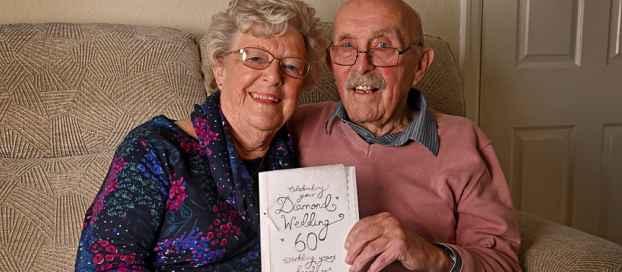 Celebrating
your
Diamond
Wedding
60
Wishing you